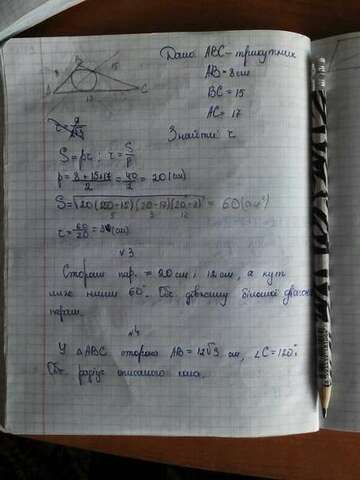 Дано: ABC - трикутник
AB = 8 см
BC = 15
AC = 17
Знайти: r
8
15
B
A
17
C
S = pr; r = S/p
p = (8+15+17)/2 = 40/2 = 20 (см)
S = √20(20-15)(20-17)(20-8) = 60 (см²)
5 3 12
r = 60/20 = 3 (см)
№3
Сторони пар. = 20 см і 12 см, а кут
між ними 60°. Обч. довжину більшої діагон.
парал.
№4
У △ABC сторона AB = 12√3 см, ∠C = 120°.
Обч. радіус описаного кола.